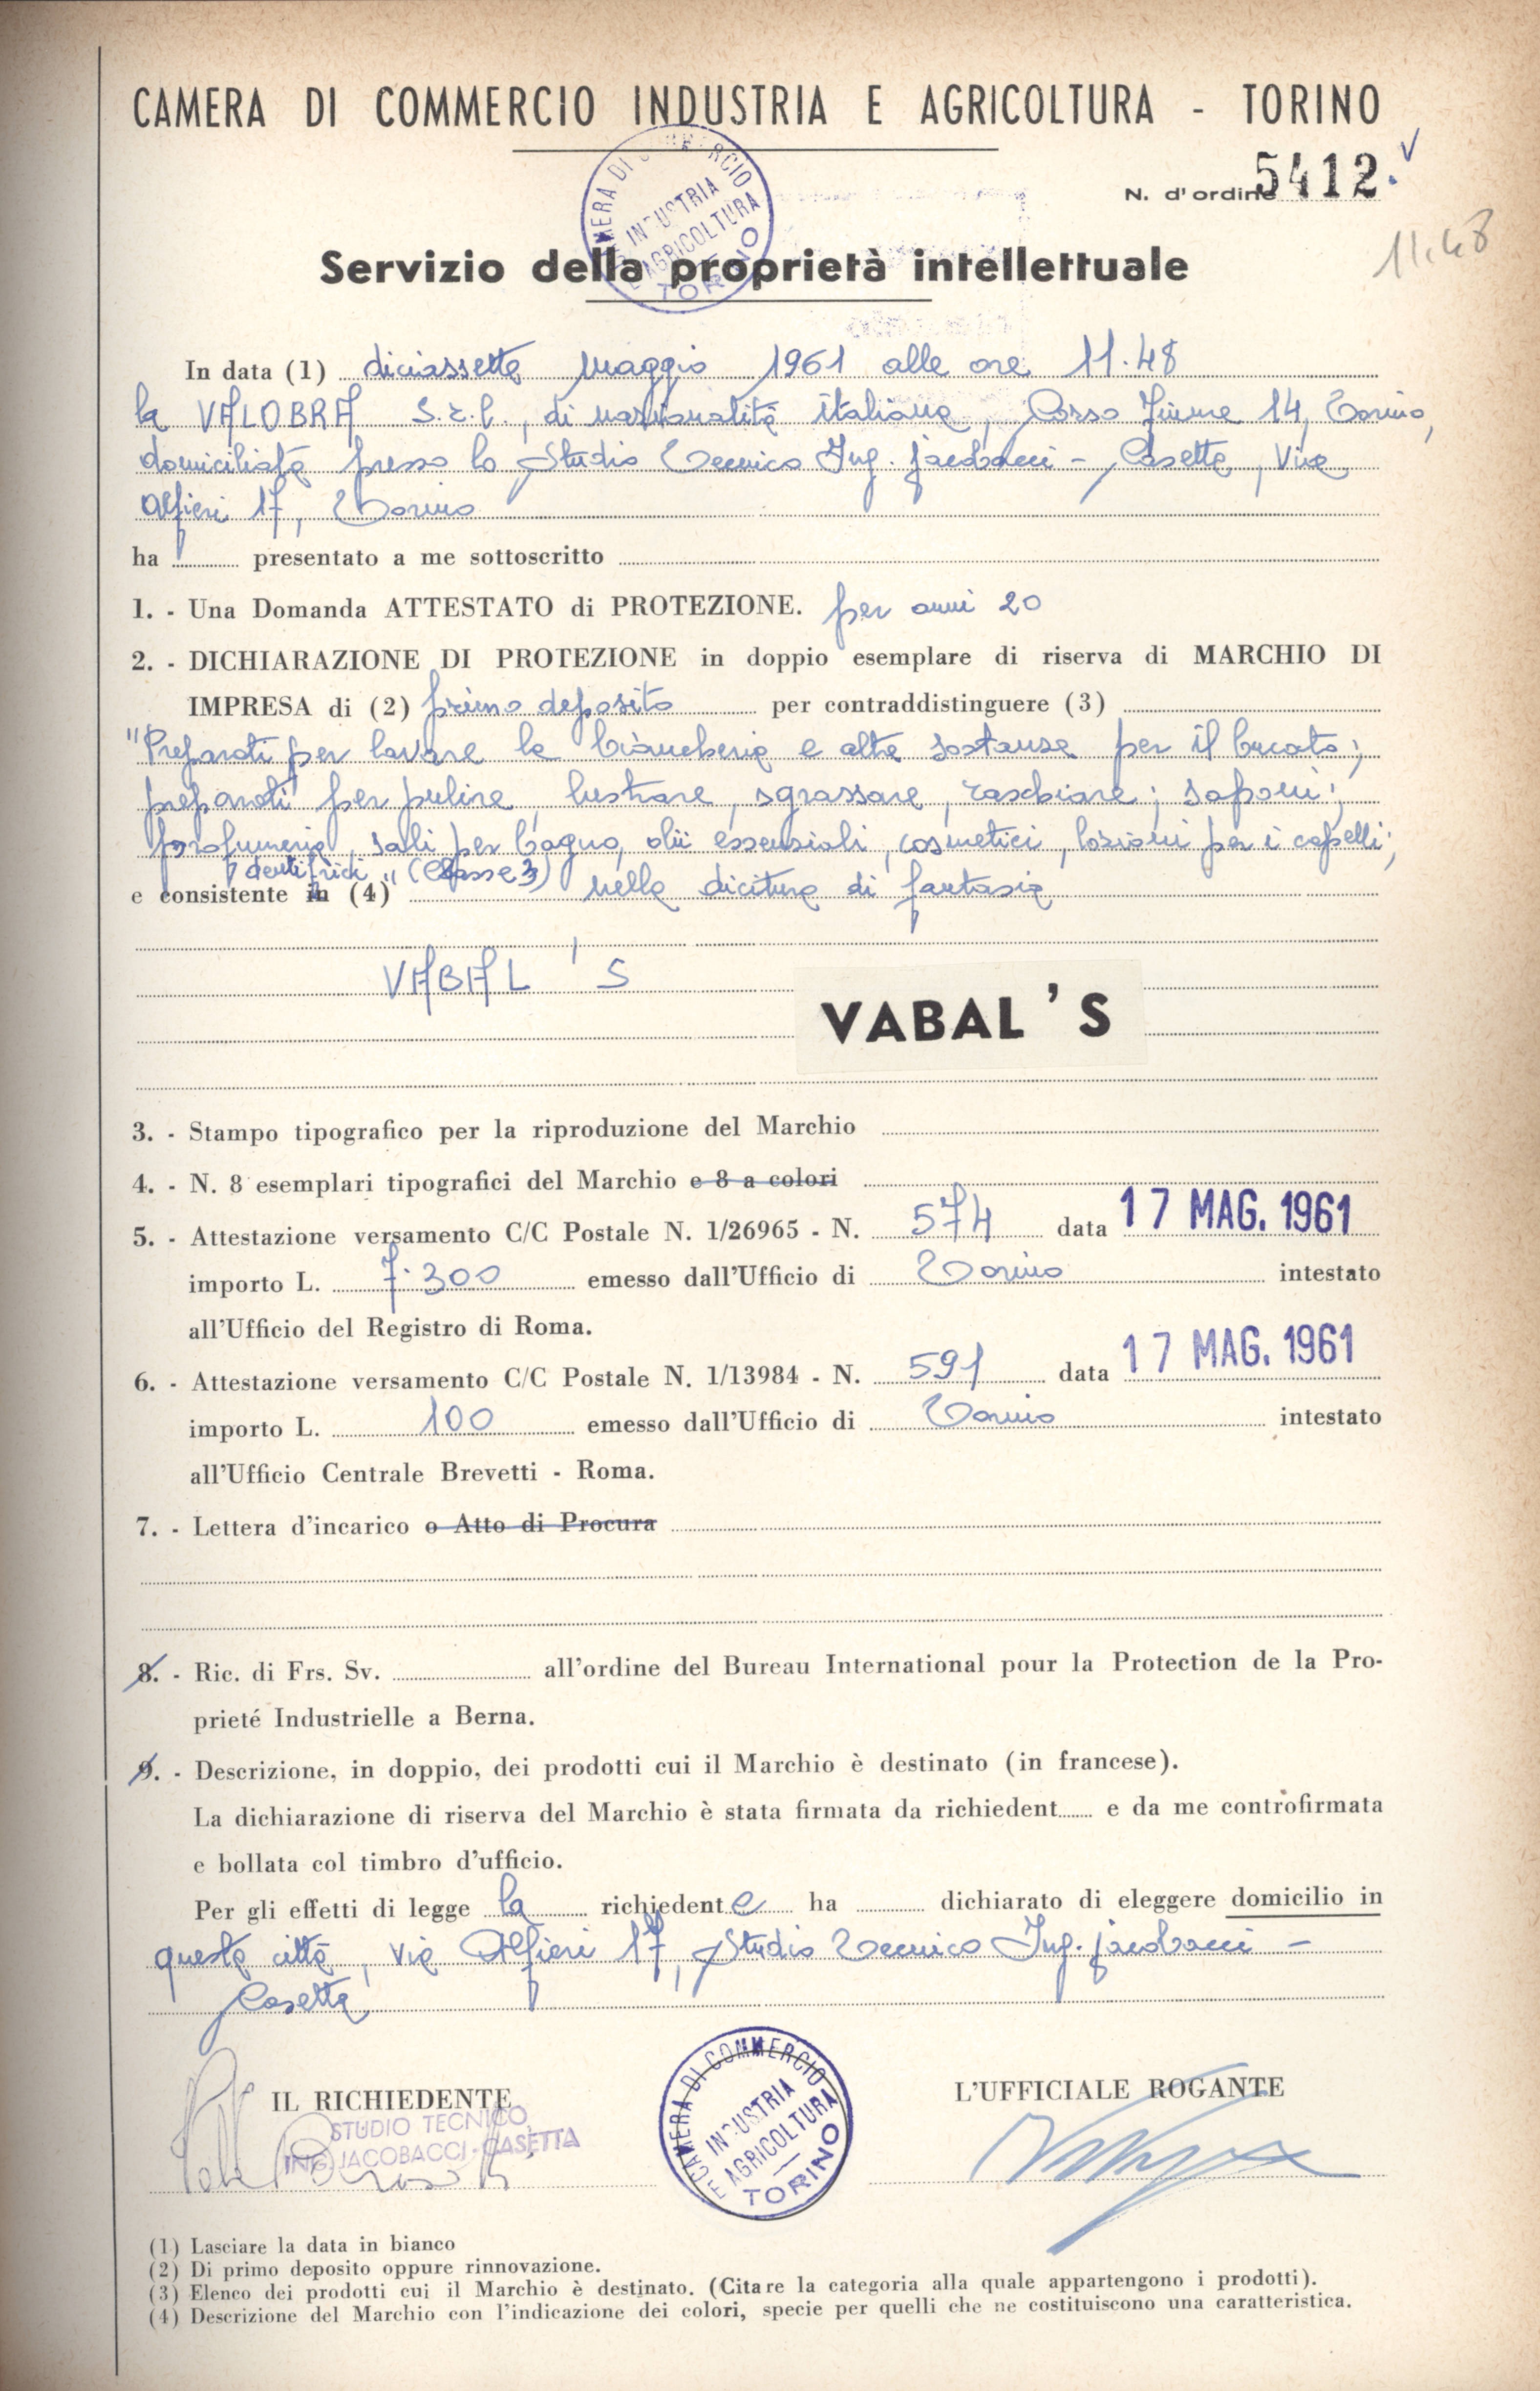 CAMERA DI COMMERCIO INDUSTRIA E AGRICOLTURA - TORINO
N. d'ordine 5412.
11.48
CAMERA DI COMMERCIO INDUSTRIA E AGRICOLTURA TORINO
Servizio della proprietà intellettuale
In data (1) diciassette maggio 1961 alle ore 11.48
la VALOBRA S.r.l., di nazionalità italiana, Corso Fiume 14, Torino,
domiciliata presso lo Studio Tecnico Ing. Jacobacci - Casetta, Via
Alfieri 17, Torino
ha presentato a me sottoscritto
1. - Una Domanda ATTESTATO di PROTEZIONE. per anni 20
2. - DICHIARAZIONE DI PROTEZIONE in doppio esemplare di riserva di MARCHIO DI
IMPRESA di (2) primo deposito per contraddistinguere (3)
"Preparati per lavare la biancheria e altre sostanze per il bucato;
preparati per pulire, lustrare, sgrassare, raschiare; saponi;
profumeria, sali per bagno, olii essenziali, cosmetici, lozioni per i capelli;
dentifrici" (Classe 3)
e consistente in (4) nella dicitura di fantasia
VABAL'S
VABAL'S
3. - Stampo tipografico per la riproduzione del Marchio
4. - N. 8 esemplari tipografici del Marchio e 8 a colori
5. - Attestazione versamento C/C Postale N. 1/26965 - N. 574 data 17 MAG. 1961
importo L. 7.300 emesso dall'Ufficio di Torino intestato
all'Ufficio del Registro di Roma.
6. - Attestazione versamento C/C Postale N. 1/13984 - N. 591 data 17 MAG. 1961
importo L. 100 emesso dall'Ufficio di Torino intestato
all'Ufficio Centrale Brevetti - Roma.
7. - Lettera d'incarico o Atto di Procura
8. - Ric. di Frs. Sv. all'ordine del Bureau International pour la Protection de la Pro-
prieté Industrielle a Berna.
9. - Descrizione, in doppio, dei prodotti cui il Marchio è destinato (in francese).
La dichiarazione di riserva del Marchio è stata firmata da richiedent e da me controfirmata
e bollata col timbro d'ufficio.
Per gli effetti di legge la richiedente ha dichiarato di eleggere domicilio in
questa città, via Alfieri 17, Studio Tecnico Ing. Jacobacci -
Casetta
IL RICHIEDENTE
STUDIO TECNICO
ING. JACOBACCI - CASETTA
CAMERA DI COMMERCIO INDUSTRIA E AGRICOLTURA TORINO
L'UFFICIALE ROGANTE
(1) Lasciare la data in bianco
(2) Di primo deposito oppure rinnovazione.
(3) Elenco dei prodotti cui il Marchio è destinato. (Citare la categoria alla quale appartengono i prodotti).
(4) Descrizione del Marchio con l'indicazione dei colori, specie per quelli che ne costituiscono una caratteristica.